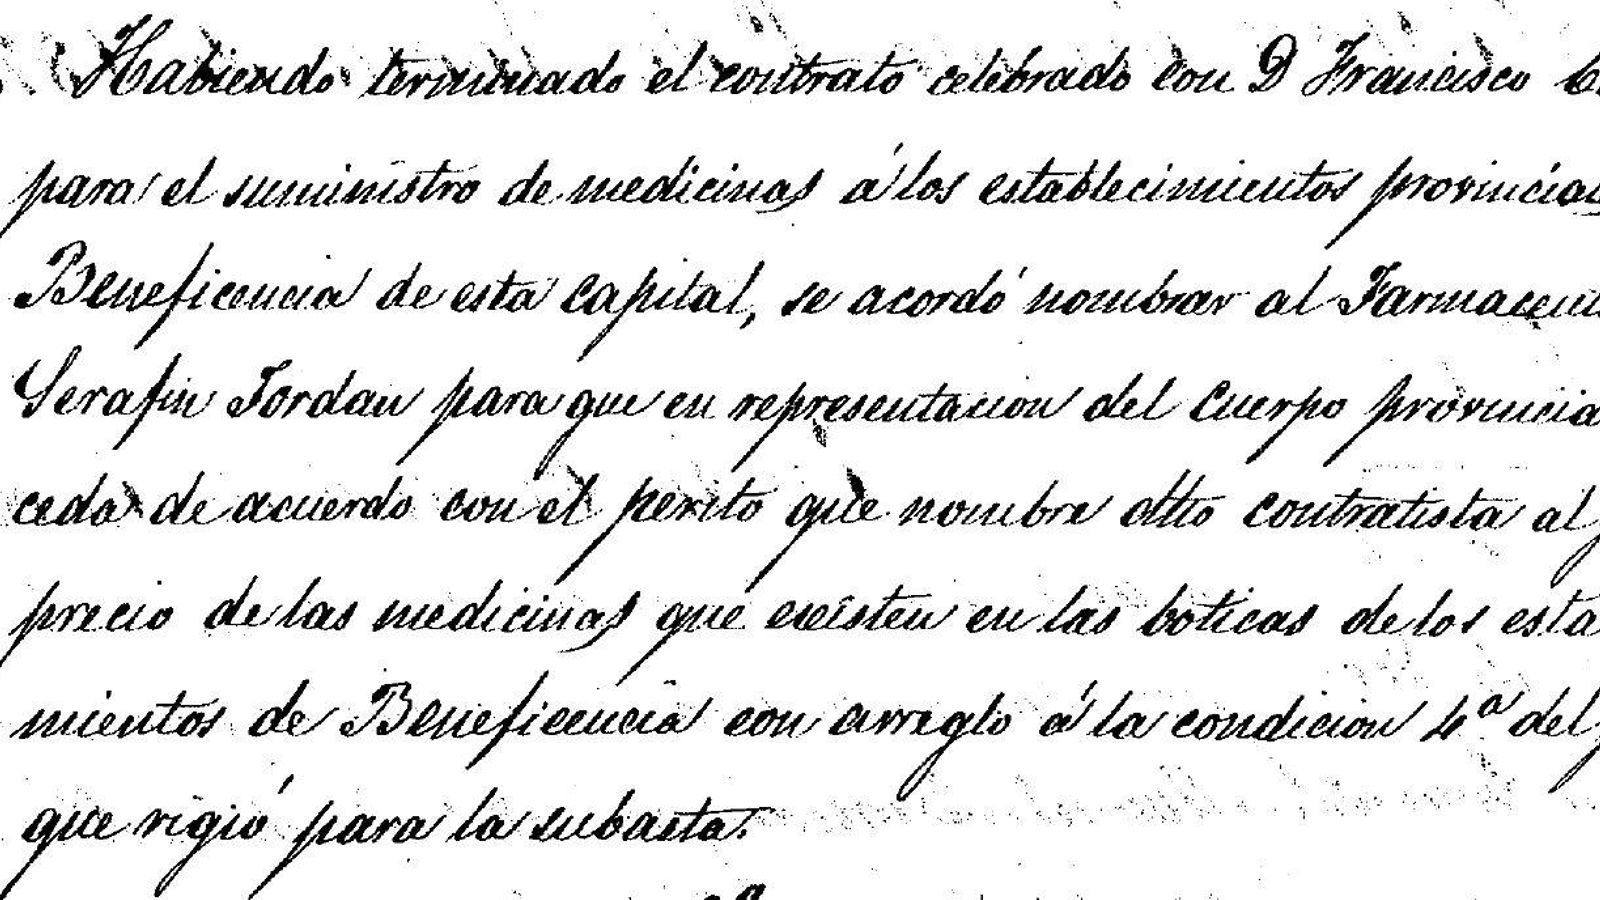 Habiendo terminado el contrato celebrado con D Francisco
para el suministro de medicinas á los establecimientos provincial
Beneficencia de esta Capital, se acordó nombrar al Farmaceu
Serafin Jordan para que en representacion del Cuerpo provincia
ceda de acuerdo con el perito que nombre dho contratista al
precio de las medicinas que existen en las boticas de los esta
mientos de Beneficencia con arreglo á la condicion 4ª del
que rigió para la subasta.